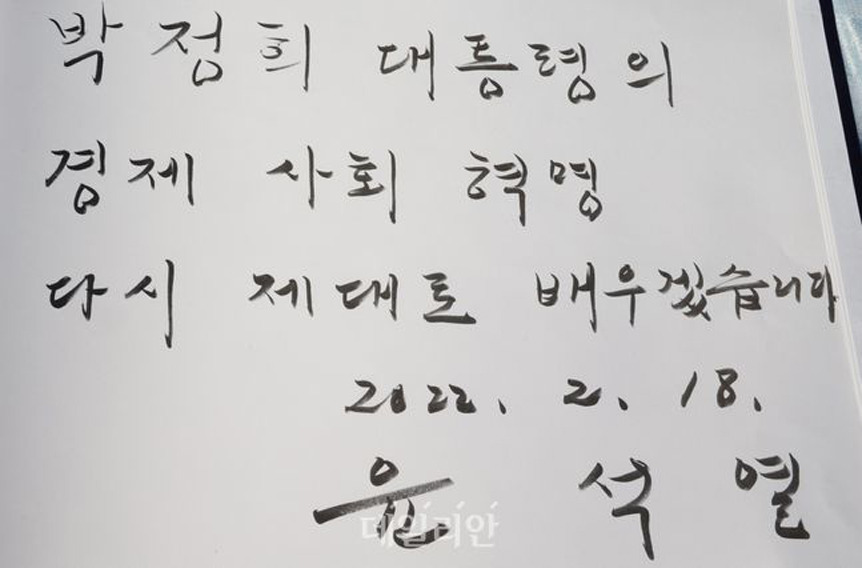 박정희 대통령의
경제 사회 혁명
다시 제대로 배우겠습니다
2022. 2. 18.
윤 석 열
데일리안